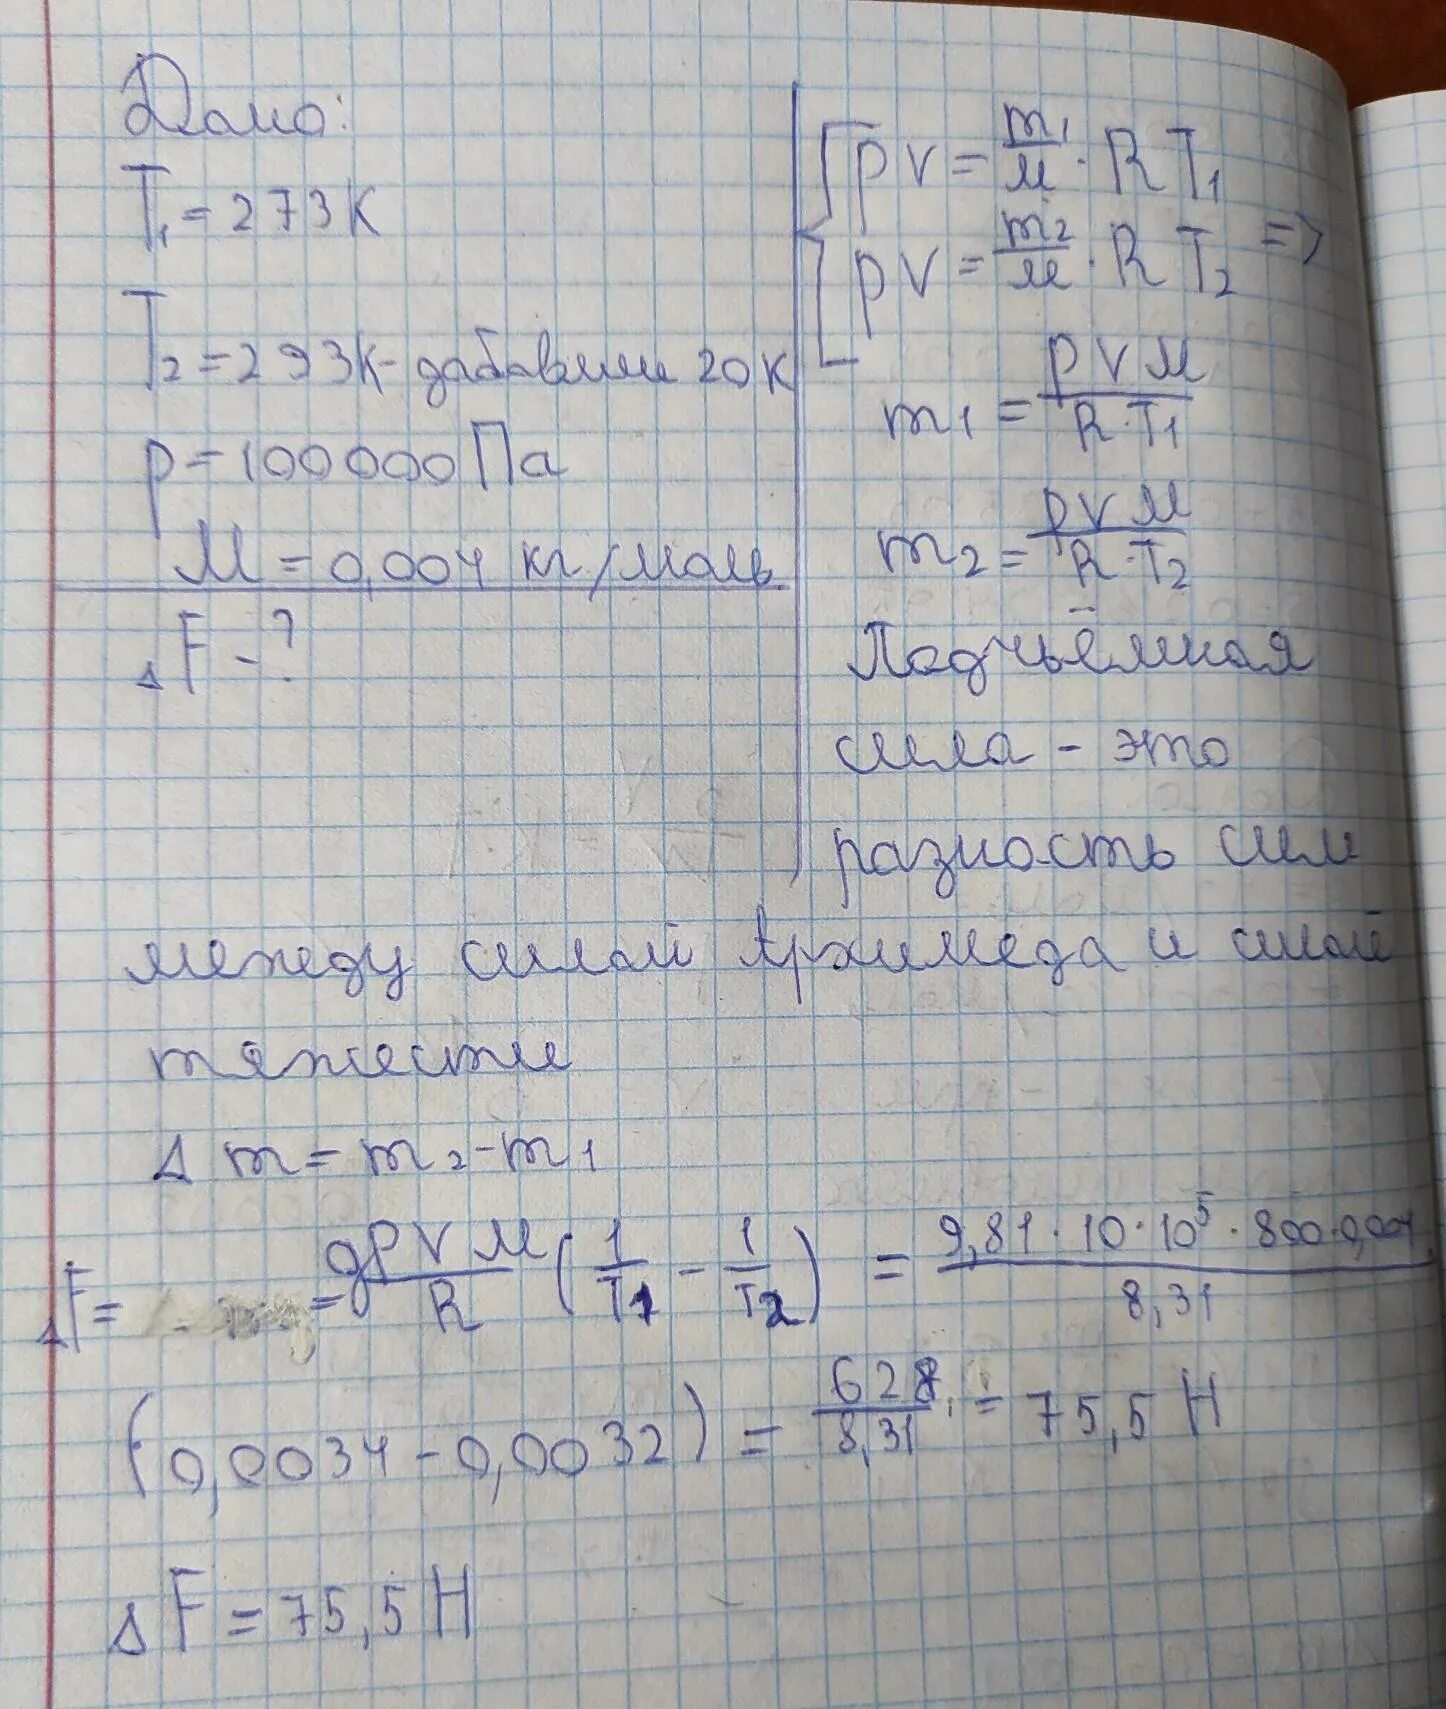 Дано:
T₁ = 273 К
T₂ = 293К - дабавили 20 К
p = 100 000 Па
M = 0,004 кг/моль
ΔF - ?
pV = m₁/M · R T₁
pV = m₂/M · R T₂ =>
m₁ = pVM / R·T₁
m₂ = pVM / R·T₂
Подчъёмная
сила - это
разность сил
между силой Архимеда и силой
тяжести
Δm = m₂ - m₁
ΔF = = gpVM/R (1/T₁ - 1/T₂) = 9,81 · 10 · 10⁵ · 800 · 0,004 / 8,31
(0,0034 - 0,0032) = 628/8,31 = 75,5 Н
ΔF = 75,5 Н